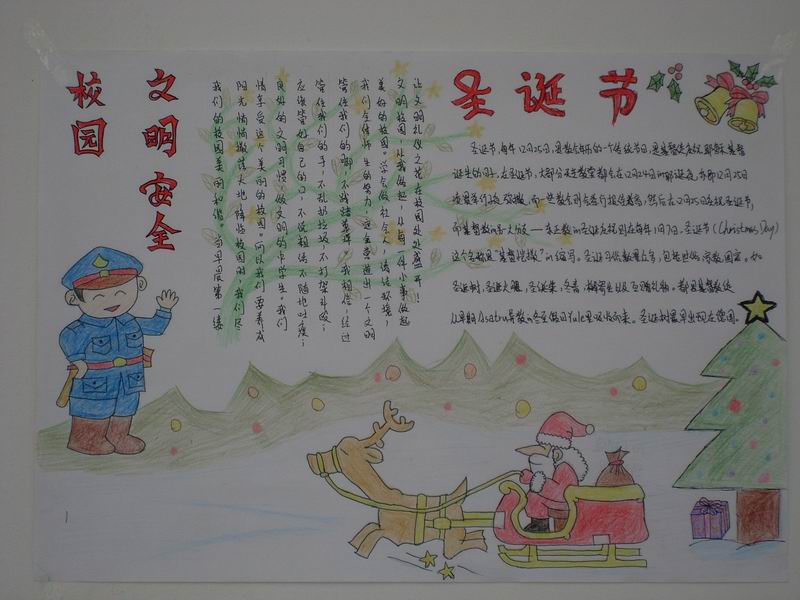 校园
文明安全
我们的校园美丽和谐。当早晨第一缕
阳光悄悄撒落大地降临校园时，我们尽
情享受这个美丽的校园。所以我们要养成
良好的文明习惯，做文明的中学生。我们
应该管好自己的口，不说粗话不随地吐痰；
管住我们的手，不乱扔垃圾不打架斗殴；
管住我们的脚，不践踏草坪。我相信，经过
我们全体师生的努力，这会营造出一个文明
美好的校园。学会做社会人，
文明校园，从我做起，从每一件小事做起
让文明礼仪之花在校园处处盛开
圣诞节
圣诞节，每年12月25日，是教会年历的一个传统节日，是基督徒庆祝耶稣基督
诞生的日子。在圣诞节，大部分天主教堂都会在12月24日的耶诞夜，亦即12月25日
凌晨举行子夜弥撒，而一些教会则会举行报佳音，然后在12月25日庆祝圣诞节；
而基督教的另一大分支——东正教的圣诞庆祝则在每年1月7日。圣诞节（Christmas Day）
这个名称是“基督弥撒”的缩写。圣诞习俗数量众多，包括如
圣诞树，圣诞火腿，圣诞柴，冬青，槲寄生以及互赠礼物。都是基督教徒
从早期Asatru异教的冬至假日Yule里吸收而来。圣诞树最早出现在德国。